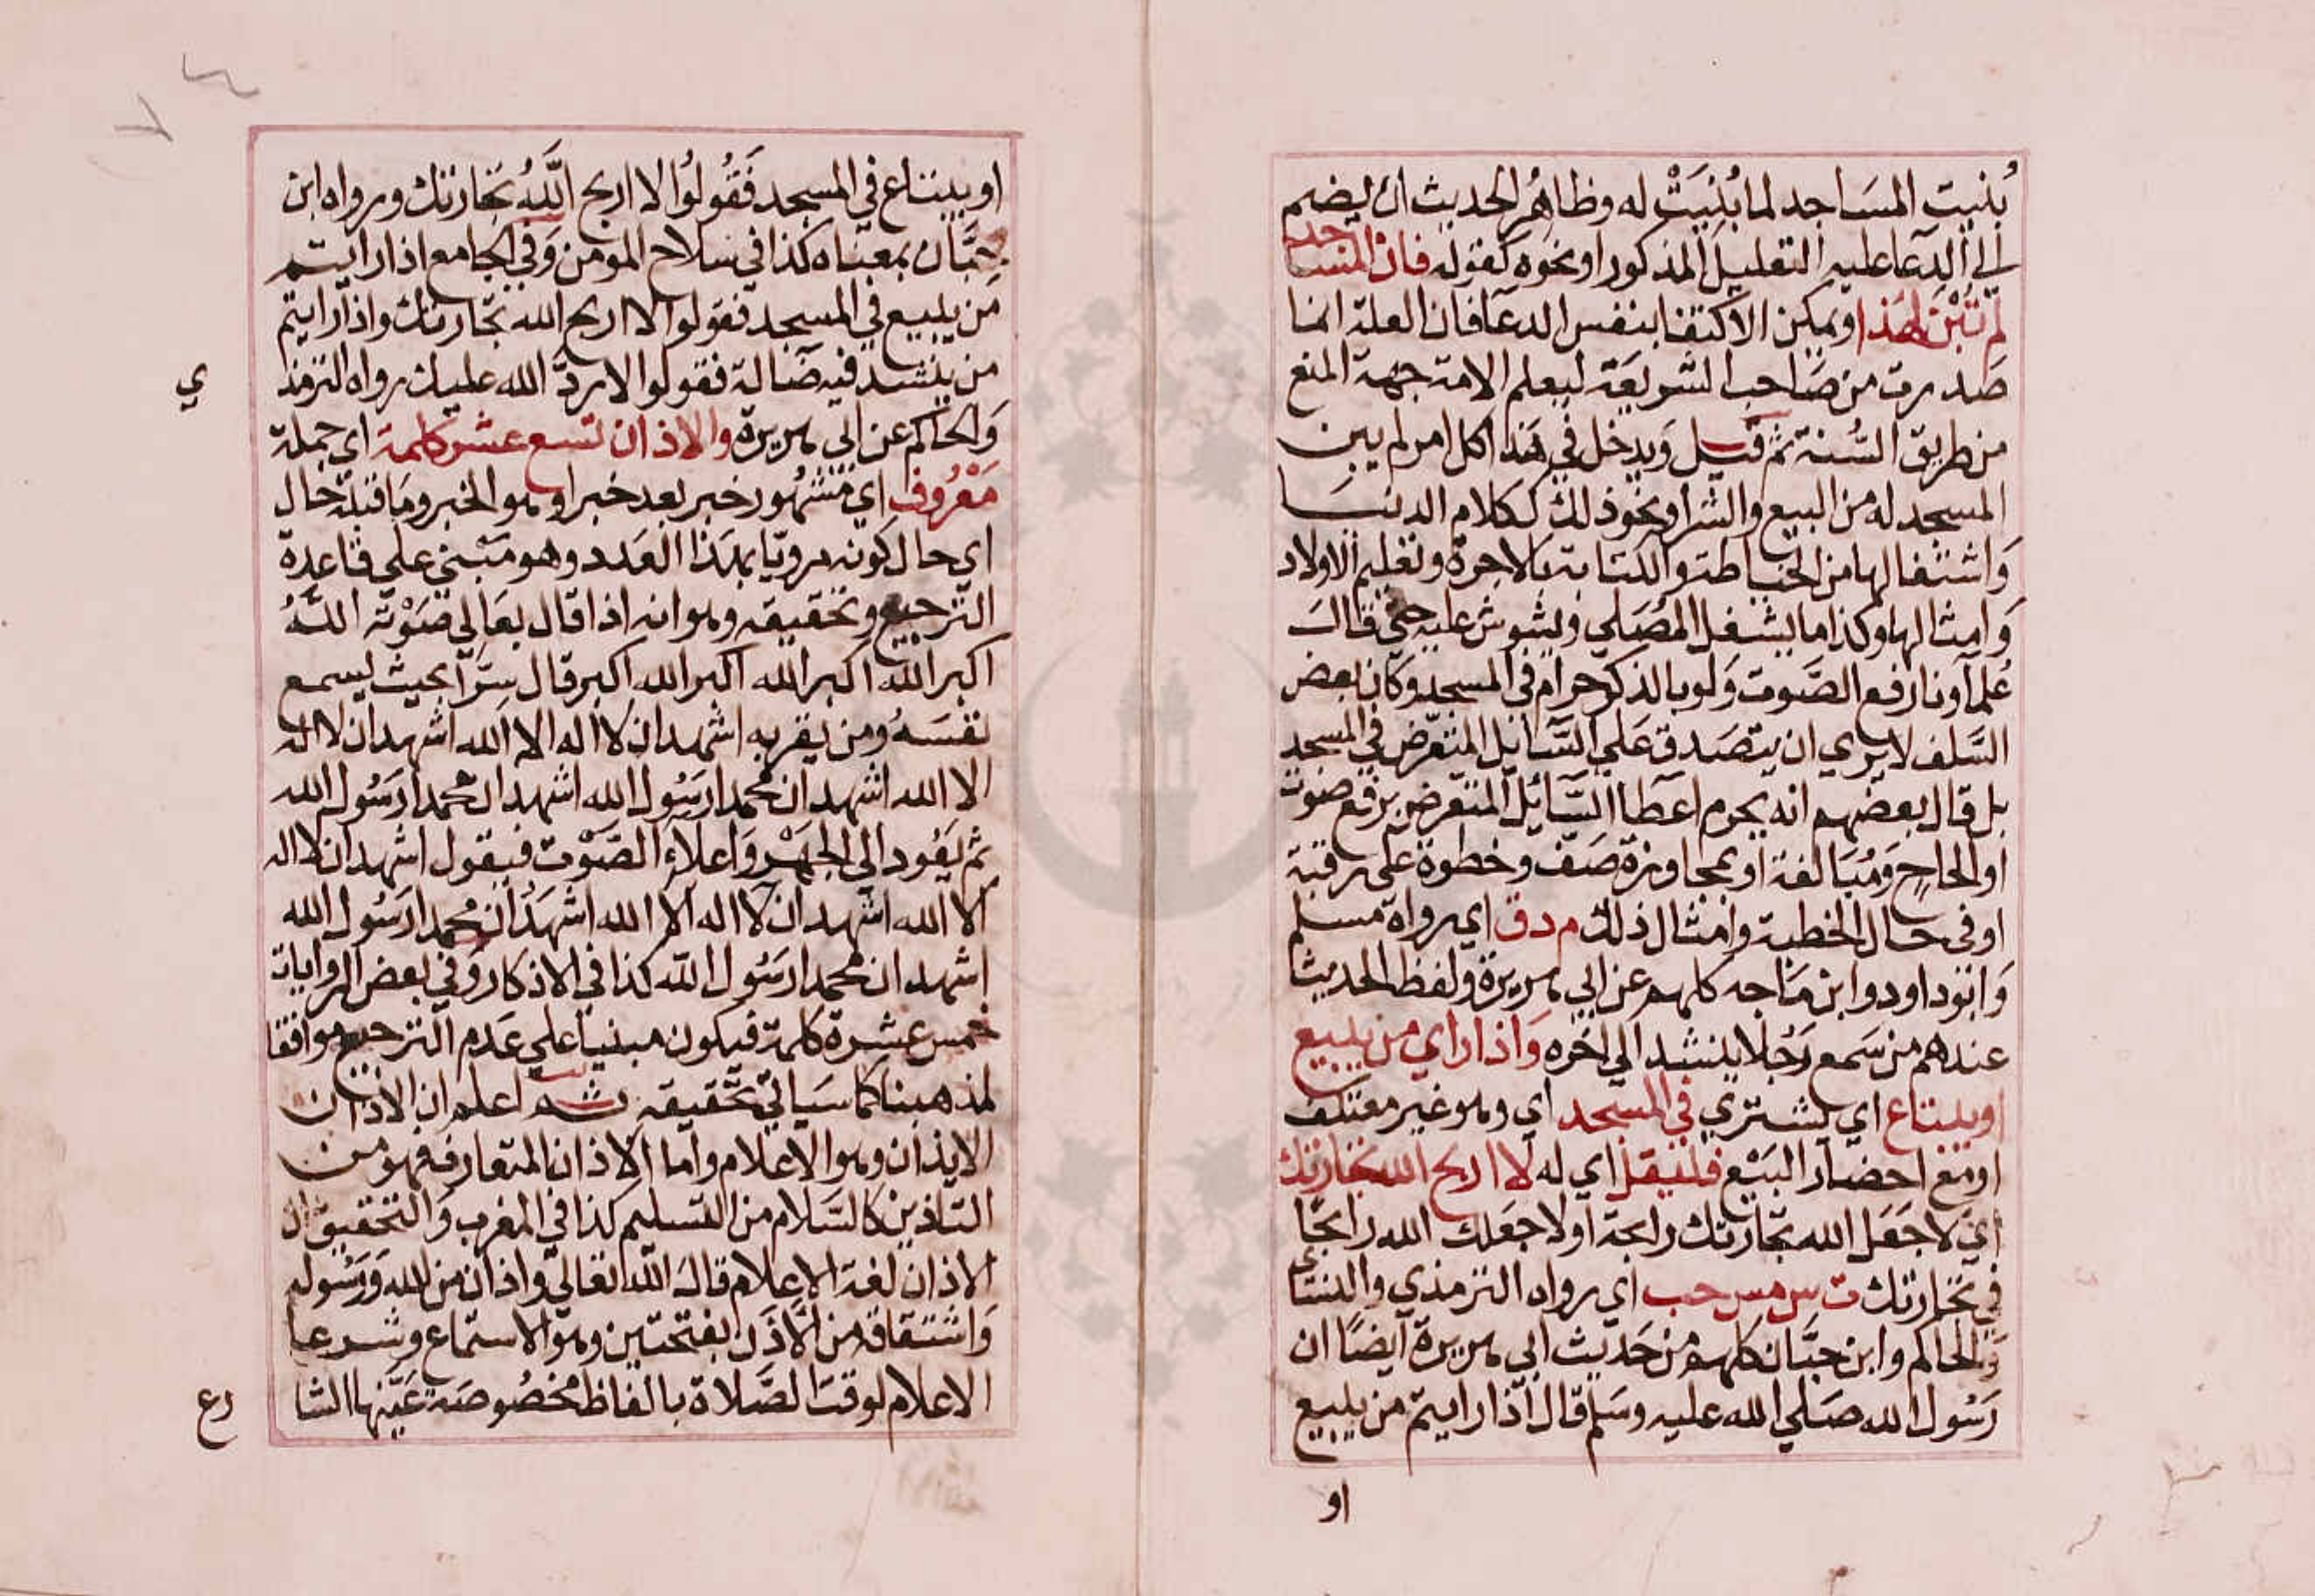 بُنيت المسَاجد لما بُنِيَتْ له وظاهرُ الحديث ان يضم
الي الدعا عليه التعليل المذكور او نحوه كقوله فان المساجد
لم تُبْن لهذا ويمكن الاكتفا بنفس الدعا فان العلة انما
صدرت من صَاحب الشريعَة ليعلم الامة جهة المنع
من طريق السُّنة ثم قيل وَيدخل في هَذا كل امر لم يبن
المسجد له من البيع والشرا ونحو ذلك ككلام الدنيَا
وَاشتغالها من الخياطة والكتابة بالاجرة وتعليم الاولاد
وَامثالها وكذا ما يشغل المُصَلي ويشوش عليه حتي قالَ
عُلمآونا رفع الصَّوت وَلو بالذكر حرام في المسجد وكان بعض
السَّلف لا يري ان يتصَدق عَلي السَّايل المتعرّض في المسجد
بل قال بعضهم انه يحرم اعطا السَّائل المتعرض برفع صَوت
او الحاحٍ وَمُبَالغة او بمجاوزة صَف وخطوة علي رقبة
او في حال الخطبة وامثال ذلك م د ق اي رواه مسلم
وَابوداود وابن مَاجه كلهم عن ابي هريرة ولفظ الحديث
عندهم من سَمع رَجُلا ينشد الي اخره وَاذا راي من يبيع
او يبتاع اي يشتري في المسجد اي وهو غير معتكف
او مع احضار البَيْع فليقل اي له لا اربح الله تجارتك
اي لا جَعَل الله تجارتك رابحة او لا جعَلك الله رابحًا
في تجارتك ت س مس حب اي رواه الترمذي والنسَائي
وَالحاكم وابن حبَّان كلهم من حَديث ابي هريرة ايضًا ان
رَسُول الله صَلي الله عليه وسَلم قال اذا رايتم من يبيع
او
او يبتاع في المسجد فَقُولُوا لا اربح اللَّهُ تجارتك ورواه ابن
حِبَّان بمعناه كذا في سلاح المومن وَفي الجامع اذا رايتم
من يبيع في المسجد فقولوا لا اربح الله تجارتك واذا رايتم
من ينشد فيه ضَالة فقولوا لا ردَّ الله عليك رواه الترمذ
ي
وَالحاكم عن ابي هريرة والاذان تسع عشر كلمة اي جملة
مَعْرُوف اي مَشهُور خبر بعد خبر او هو الخبر ومَا قبله حال
اي حال كونه مرويّا بهذا العَدد وهو مَبْني علي قاعدة
الترجيع وتحقيقه وهو انه اذا قال بعَالي صَوْته اللهُ
اكبر الله اكبر الله اكبر الله اكبر قال سِرًّا بحيث يسمع
نفسَهُ ومن يقربه اشهد ان لا اله الا الله اشهد ان لا اله
الا الله اشهد ان محمدا رسُول الله اشهد ان محمدا رَسُول الله
ثم يَعُود الي الجهْر وَاعلاءِ الصَّوْت فيقول اشهد ان لا اله
الا الله اشهد ان لا اله الا الله اشهَدُ ان محمدا رَسُول الله
اشهد ان محمدا رسُول الله كذا في الاذكار وَفي بعض الروايات
خمس عشرة كلمة فيكون مبنيا علي عَدم الترجيع موافقا
لمذهبنا كما سَياتي تحقيقه ثم اعلم ان الاذان
الايذان وهو الاعلام وَاما الاذان المتعارف فهو من
التاذين كالسَّلام من التسليم كذا في المغرب وَالتحقيق ان
الاذان لغة الاعلام قالَ الله تعالي واذان من الله وَرَسُوله
وَاشتقاقه من الاَذَن بفتحتين وهو الاستماع وشرعا
الاعلام لوقت الصَّلاة بالفاظ مخصُوصَة عَيّنها الشا
رع